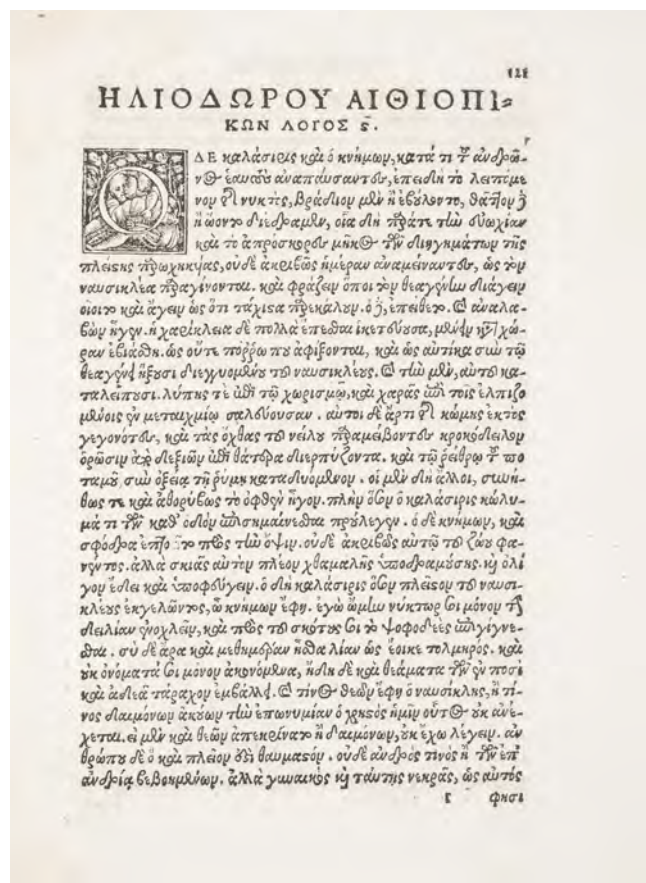 121
ΗΛΙΟΔΩΡΟΥ ΑΙΘΙΟΠΙ-
ΚΩΝ ΛΟΓΟΣ ς.
Ο ΔΕ καλάσιρις καὶ ὁ κνήμων, κατά τι τοῦ ἀνδρῶ-
νος ἑαυτοὺ ἀναπαύσαντες, ἐπειδὴ τὸ λειπόμε
νον τῆς νυκτὸς, βράδιον μὲν ἢ ἐβούλοντο, θᾶττον δὲ
ἢ ὤοντο διέδραμεν, οἷα δὴ πράτε τὴν εὐωχίαν
καὶ τὸ ἀπρόσκορον μῆκος τῶν διηγημάτων τῆς
πλείστης προηκούσας, οὐδὲ ἀκριβῶς ἡμέραν ἀναμείναντες, ὡς τὸν
ναυσικλέα παραγίνονται. καὶ φράζειν ὅποι τὸν θεαγένην διάγειν
οἴοιτο καὶ ἄγειν ὡς ὅτι τάχιστα παρεκάλουν. ὁ δὲ, ἐπείθετο. καὶ ἀναλα-
βὼν ἦγεν. ἡ χαρίκλεια δὲ πολλὰ ἕπεσθαι ἱκετεύουσα, μένειν κατὰ χώ-
ραν ἐβιάσθη. ὡς οὔτε πόῤῥω που ἀφίξονται, καὶ ὡς αὐτίκα σὺν τῷ
θεαγένει ἥξουσι διεγγυομένου τοῦ ναυσικλέους. καὶ τὴν μὲν, αὐτοῦ κα-
ταλείπουσι. λύπης τὲ ἐπὶ τῷ χωρισμῷ, καὶ χαρᾶς ἐπὶ τοῖς ἐλπιζο
μένοις ἐν μεταιχμίῳ σαλεύουσαν. αὐτοὶ δὲ ἄρτι τῆς κώμης ἐκτὸς
γεγονότες, καὶ τὰς ὄχθας τοῦ νείλου παραμείβοντες κροκόδειλον
ὁρῶσιν ἀπὸ δεξιῶν ἐπὶ θάτερα διερπύζοντα. καὶ τῷ ῥείθρῳ τοῦ πο
ταμοῦ σὺν ὀξείᾳ τῇ ῥύμῃ καταδυόμενον. οἱ μὲν δὴ ἄλλοι, συνή-
θως τε καὶ ἀθορύβως τὸ ὀφθὲν ἦγον. πλὴν ὅσον ὁ καλάσιρις κώλυ-
μά τι τῶν καθ' ὁδὸν ἐπισημαίνεσθαι προὔλεγεν. ὁ δὲ κνήμων, καὶ
σφόδρα ἐπτόητο πρὸς τὴν ὄψιν. οὐδὲ ἀκριβῶς αὐτῷ τοῦ ζώου φα-
νέντος. ἀλλὰ σκιᾶς αὐτὸν πλέον χθαμαλῆς ὑποδραμούσης. καὶ ὀλί
γον ἔδει καὶ ὑποφεύγειν. ὁ δὴ καλάσιρις ὅσον πλεῖστον τοῦ ναυσι-
κλέους ἐκγελῶντος, ὦ κνήμων ἔφη. ἐγὼ ᾤμην νύκτωρ σοι μόνον τὴν
δειλίαν ἐνοχλεῖν, καὶ πρὸς τοῦ σκότους σοι τὸ ψοφοδεὲς ἐπιγίγνε-
σθαι. σὺ δὲ ἄρα καὶ μεθημέραν ἦσθα λίαν ὡς ἔοικε τολμηρός. καὶ
οὐκ ὀνόματά σοι μόνον ἀκουόμενα, ἤδη δὲ καὶ θεάματα τῶν ἐν ποσὶ
καὶ ἀδεᾶ τάραχον ἐμβάλλει. καὶ τίνος θεῶν ἔφη ὁ ναυσικλῆς, ἢ τί-
νος δαιμόνων ἀκούων τὴν ἐπωνυμίαν ὁ χρηστὸς ἡμῖν οὗτος οὐκ ἀνέ-
χεται. εἰ μὲν καὶ θεῶν ἀπεκρίνατο ἢ δαιμόνων, οὐκ ἔχω λέγειν. ἀν
θρώπου δὲ ὃ καὶ πλεῖον ἐστὶ θαυμαστόν. οὐδὲ ἀνδρός τινὸς ἢ τῶν ἐπ'
ἀνδρίᾳ βεβοημένων. ἀλλὰ γυναικὸς καὶ ταύτης νεκρᾶς, ὡς αὐτός
φησι